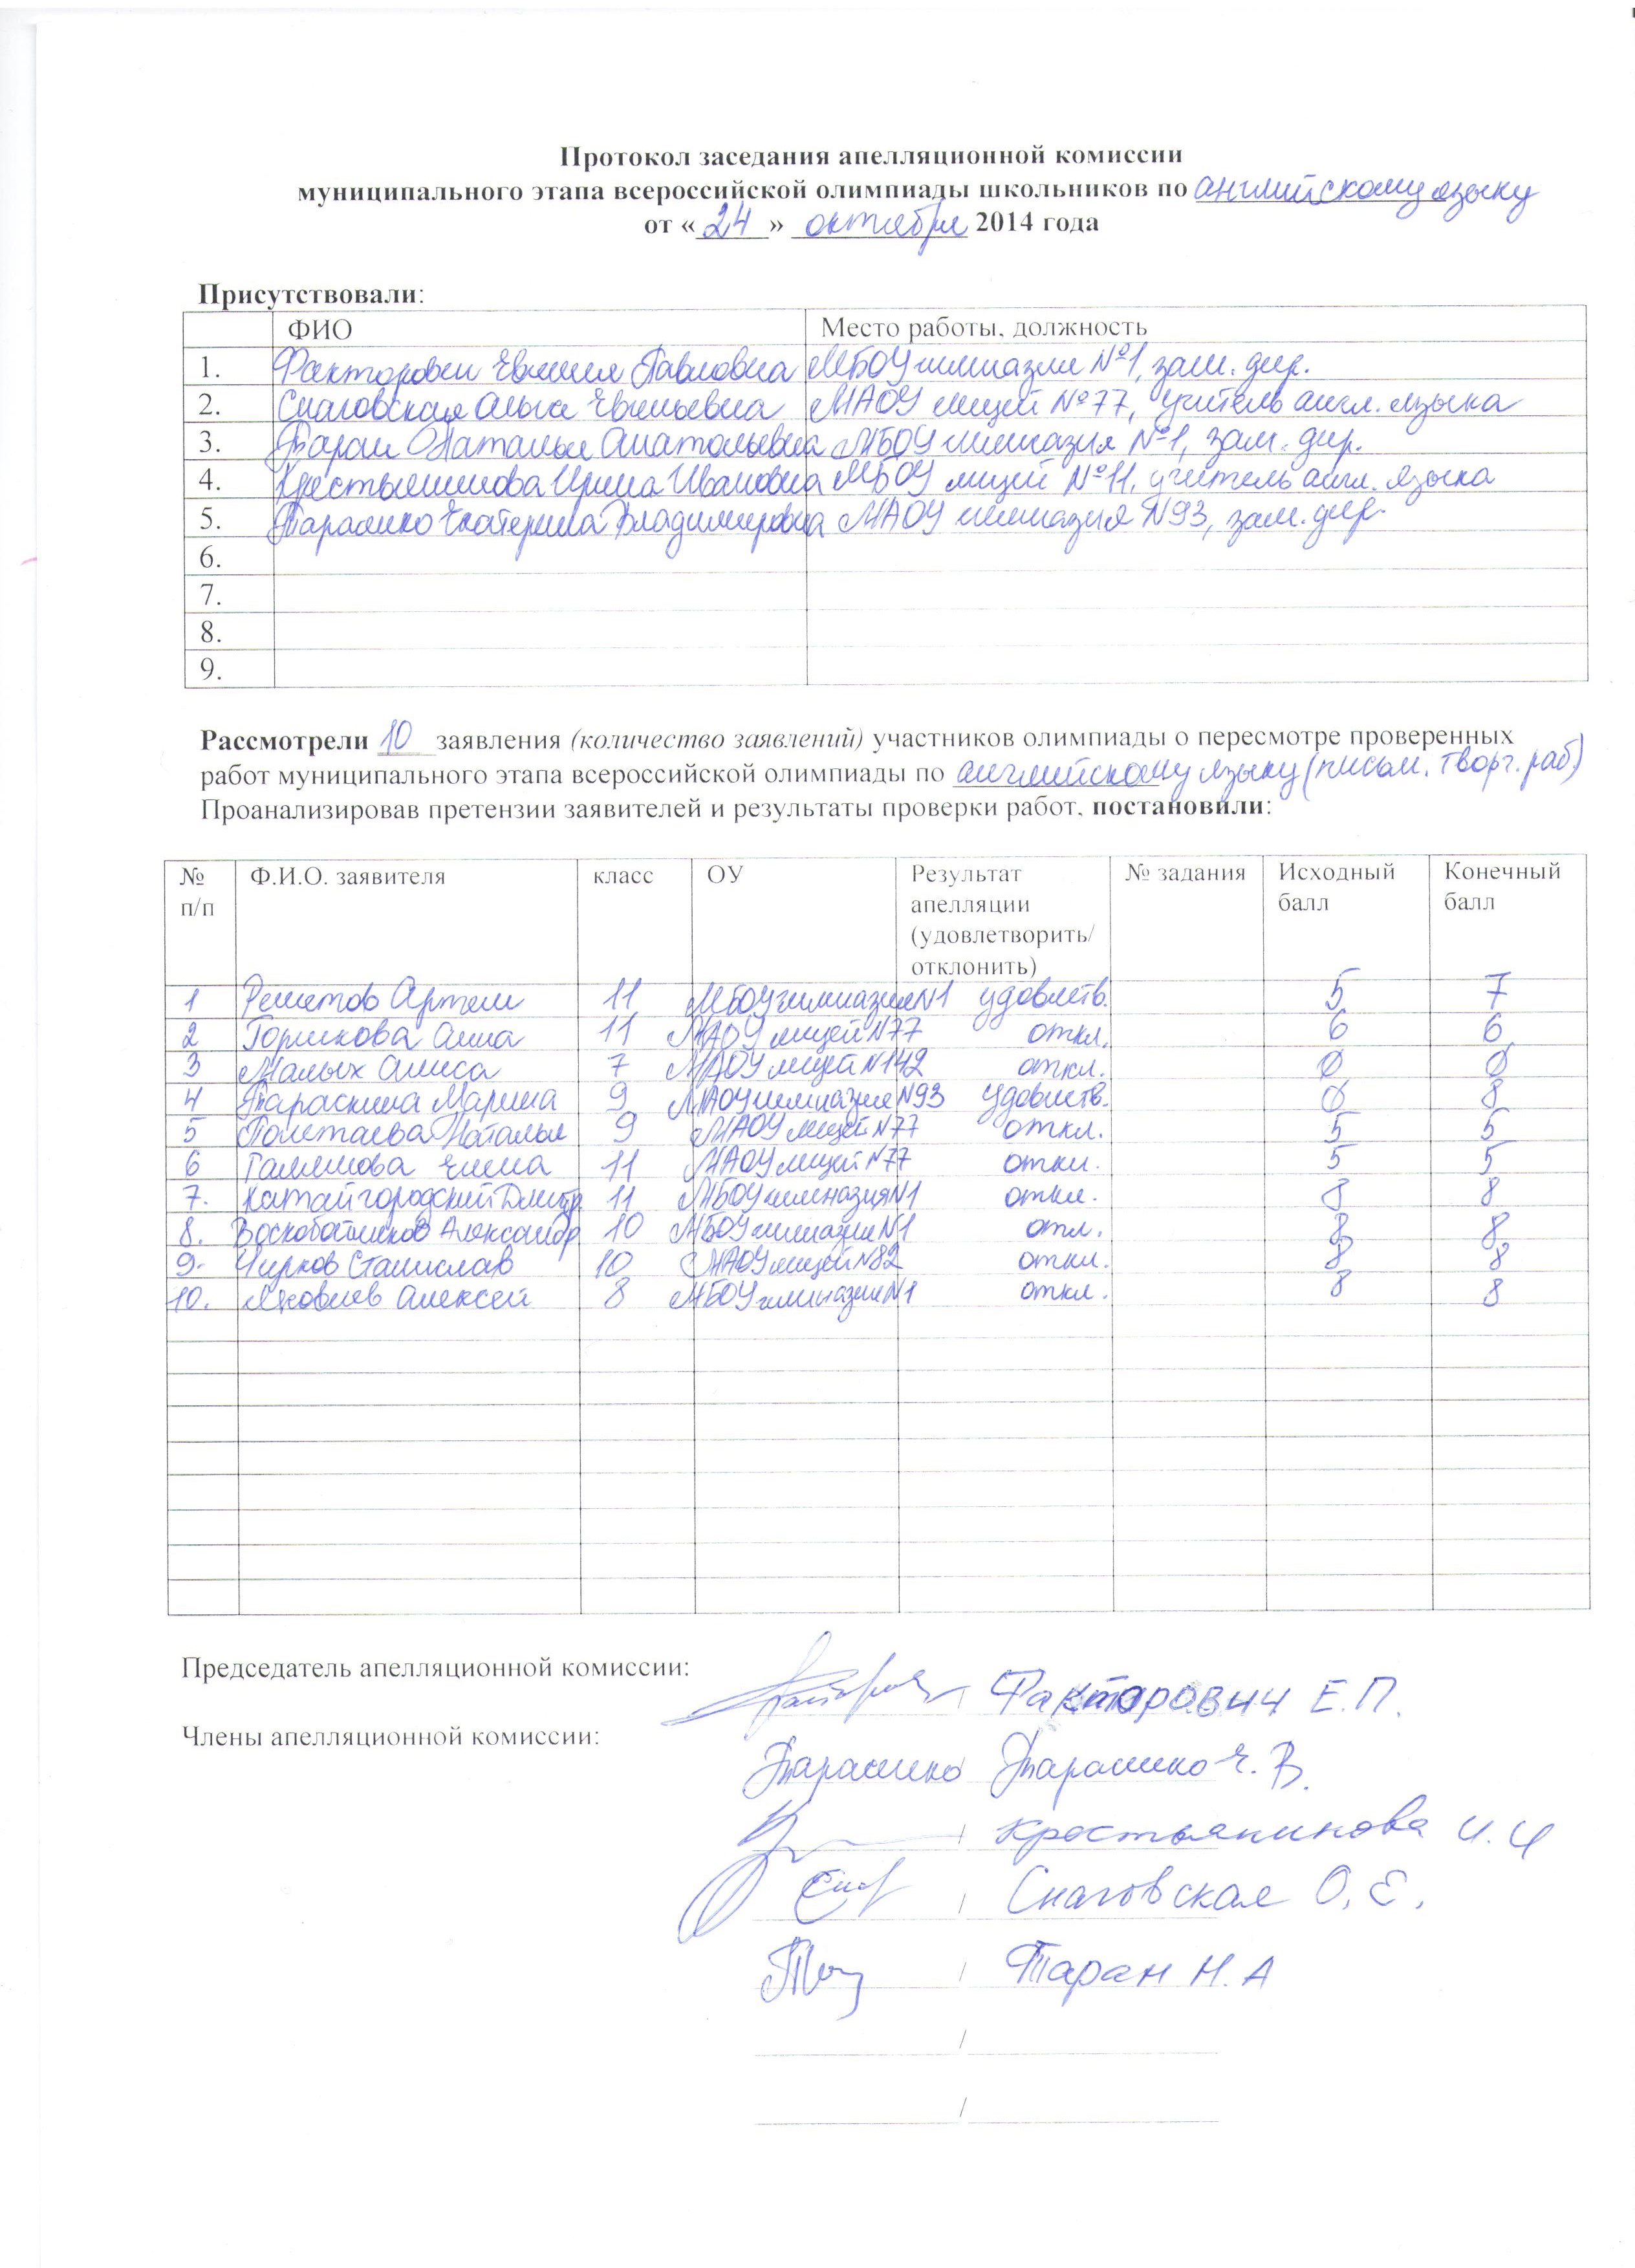 Протокол заседания апелляционной комиссии
муниципального этапа всероссийской олимпиады школьников по английскому языку
от «24» октября 2014 года
Присутствовали:
ФИО Место работы, должность
1. Факторович Евгения Павловна МБОУ гимназия №1, зам. дир.
2. Снаговская Ольга Евгеньевна МАОУ лицей №77, учитель англ. языка
3. Таран Наталья Анатольевна МБОУ гимназия №1, зам. дир.
4. Крестьянинова Ирина Ивановна МБОУ лицей №11, учитель англ. языка
5. Тараненко Екатерина Владимировна МАОУ гимназия N93, зам. дир.
6.
7.
8.
9.
Рассмотрели 10 заявления (количество заявлений) участников олимпиады о пересмотре проверенных
работ муниципального этапа всероссийской олимпиады по английскому языку (письм. творч. раб)
Проанализировав претензии заявителей и результаты проверки работ, постановили:
№ п/п Ф.И.О. заявителя класс ОУ Результат апелляции (удовлетворить/ отклонить) № задания Исходный балл Конечный балл
1 Решетов Артем 11 МБОУ гимназия N1 удовлетв. 5 7
2 Горшкова Анна 11 МАОУ лицей N77 откл. 6 6
3 Малых Алиса 7 МАОУ лицей N142 откл. 0 0
4 Тараскина Марина 9 МАОУ гимназия N93 удовлетв. 0 8
5 Полетаева Наталья 9 МАОУ лицей N77 откл. 5 5
6 Елена 11 МАОУ лицей N77 откл. 5 5
7. Китайгородский Дмитр. 11 МБОУ гимназия N1 откл. 8 8
8. Воскобойников Александр 10 МБОУ гимназия N1 отл. 8 8
9. Чирков Станислав 10 МАОУ лицей N82 откл. 8 8
10. Яковлев Алексей 8 МБОУ гимназия N1 откл. 8 8
Председатель апелляционной комиссии: / Факторович Е.П.
Члены апелляционной комиссии:
Тараненко / Тараненко Е.В.
/ Крестьянинова И.И
/ Снаговская О.Е.
/ Таран Н.А
/
/